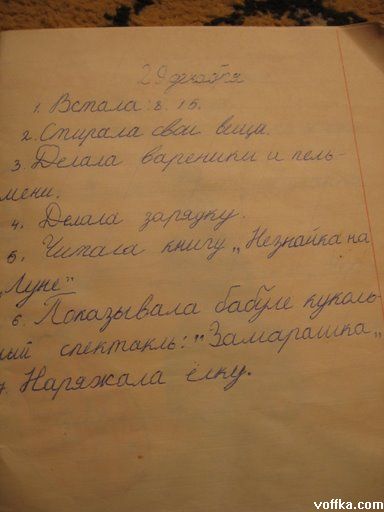 29 декабря
1. Встала: 8. 15.
2. Стирала свои вещи.
3. Делала вареники и пель-
мени.
4. Делала зарядку.
5. Читала книгу „Незнайка на
„Луне"
6. Показывала бабуле куколь-
ный спектакль: "Замарашка„
7. Наряжала ёлку.
voffka.com